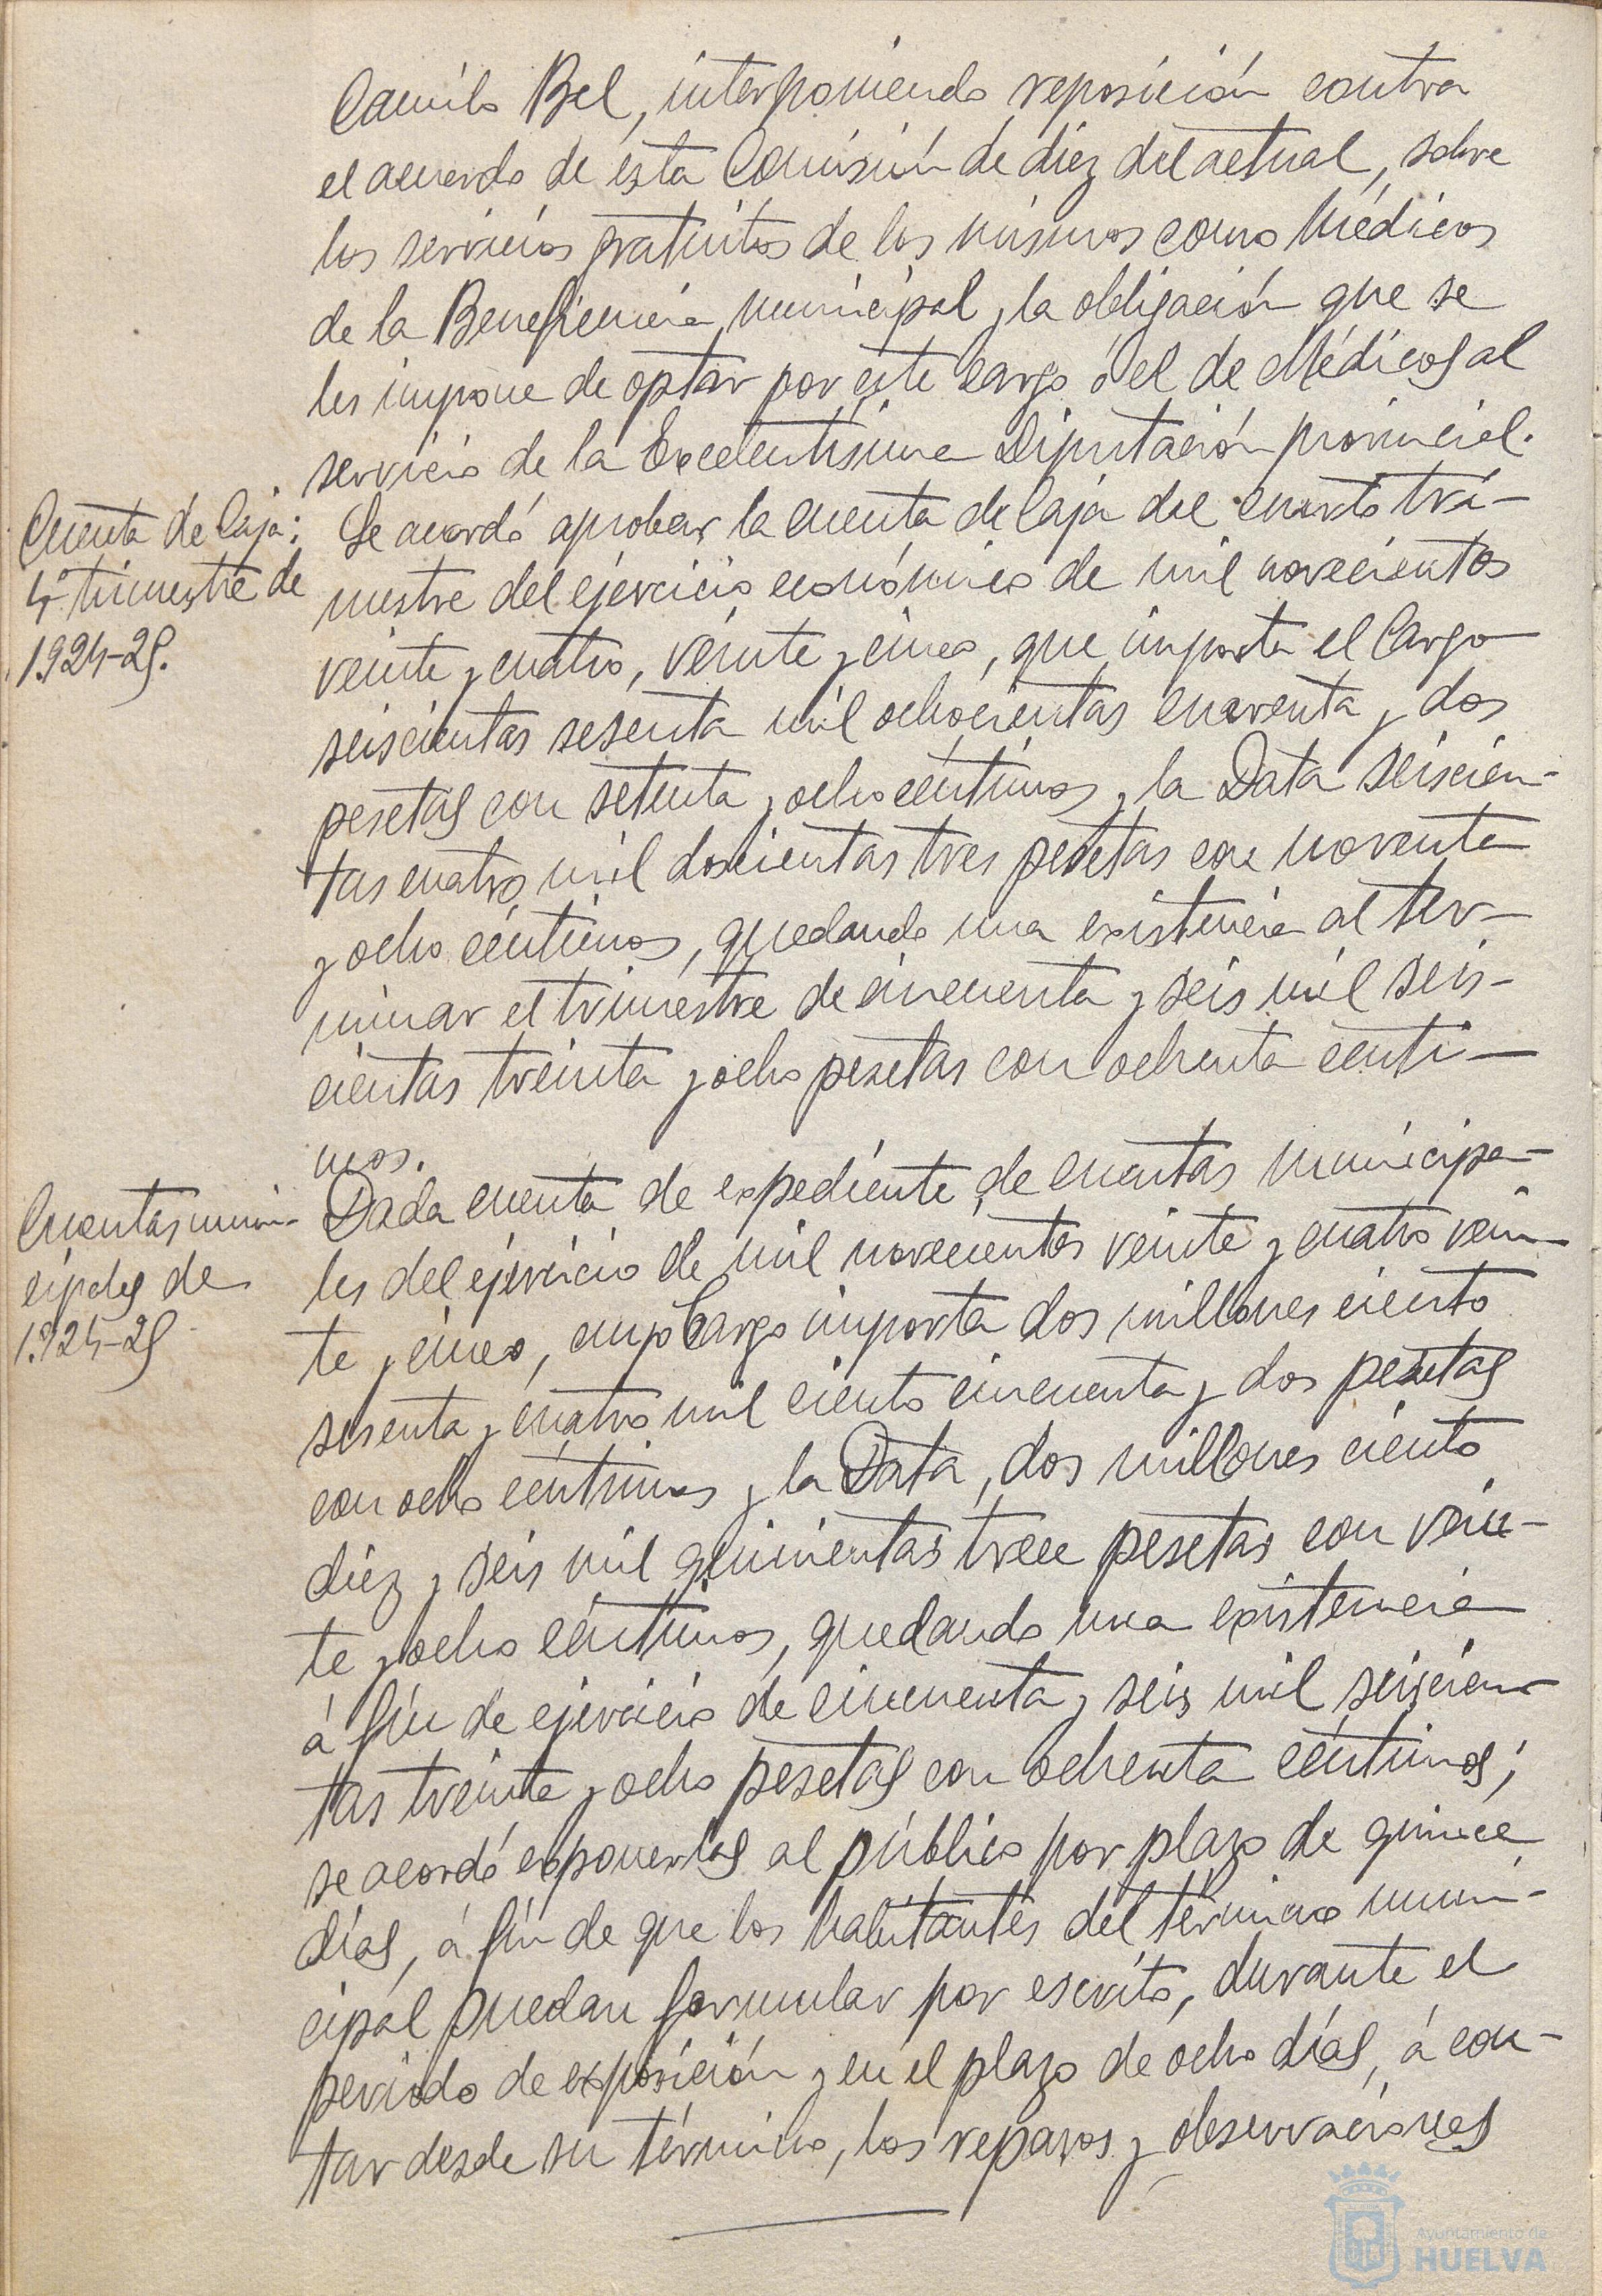 Camilo Bel, interponiendo reposición contra
el acuerdo de esta Comisión de diez del actual, sobre
los servicios gratuitos de los mismos como Médicos
de la Beneficencia municipal y la obligación que se
les impone de optar por este cargo ó el de Médicos al
servicio de la Excelentísima Diputación provincial.
Cuenta de Caja:
4º trimestre de
1.924-25.
Se acordó aprobar la cuenta de Caja del cuarto tri-
mestre del ejercicio económico de mil novecientos
veinte y cuatro, veinte y cinco, que importa el Cargo
seiscientas sesenta mil ochocientas cuarenta y dos
pesetas con setenta y ocho céntimos y la Data seiscien-
tas cuatro mil doscientas tres pesetas con noventa
y ocho céntimos, quedando una existencia al ter-
minar el trimestre de cincuenta y seis mil seis-
cientas treinta y ocho pesetas con ochenta centi-
mos.
Cuentas muni-
cipales de
1.924-25
Dada cuenta de expediente de cuentas municipa-
les del ejercicio de mil novecientos veinte y cuatro vein-
te y cinco, cuyo Cargo importa dos millones ciento
sesenta y cuatro mil ciento cincuenta y dos pesetas
con ocho céntimos y la Data, dos millones ciento
diez y seis mil quinientas trece pesetas con vein-
te y ocho céntimos, quedando una existencia
á fin de ejercicio de cincuenta y seis mil seiscien-
tas treinta y ocho pesetas con ochenta céntimos;
se acordó exponerlas al público por plazo de quince
días, á fin de que los habitantes del término muni-
cipal puedan formular por escrito, durante el
periodo de exposición y en el plazo de ocho días, á con-
tar desde su término, los reparos y observaciones
Ayuntamiento de
HUELVA